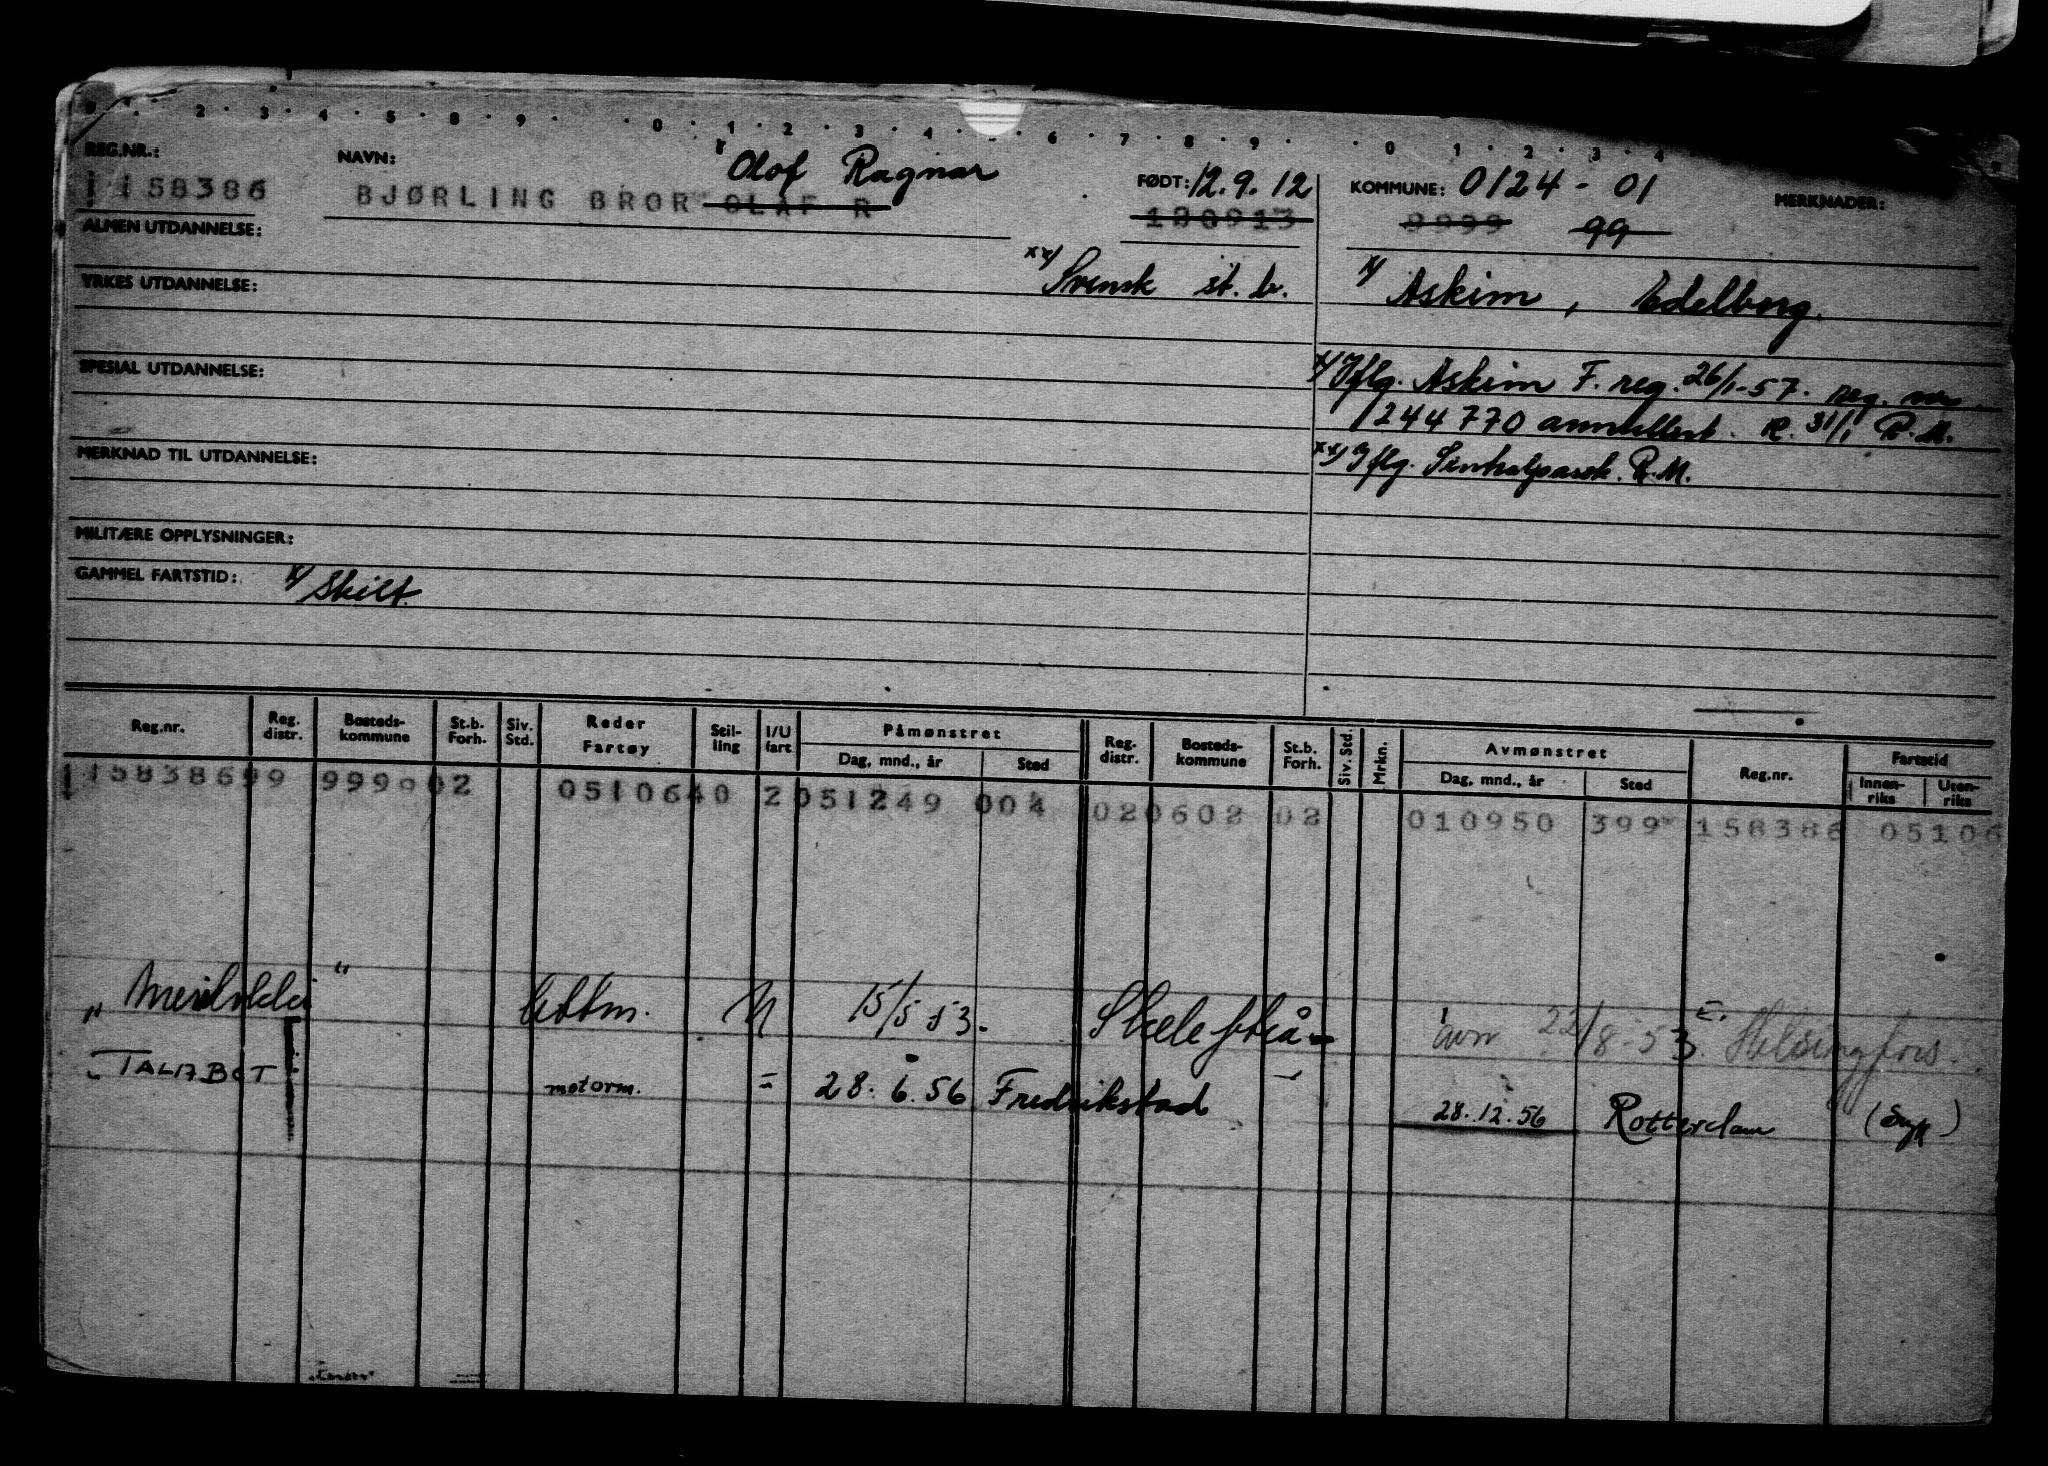 REG.NR.:
158386
NAVN:
Olof Ragnar
BJØRLING BROR OLAF R
FØDT: 12.9.12
130913
KOMMUNE: 0124-01
9999 99
MERKNADER:
ALMEN UTDANNELSE:
xx/ Svensk st. b.
x/ Askim, Edelborg.
YRKES UTDANNELSE:
x/ Iflg. Askim F. reg. 26/1-57. reg. nr.
SPESIAL UTDANNELSE:
1244770 annullert. R. 31/1 R.M.
xx/ Iflg. Sentralpassk. R.M.
MERKNAD TIL UTDANNELSE:
MILITÆRE OPPLYSNINGER:
GAMMEL FARTSTID: x/ Skilt.
Reg.nr. Reg. distr. Bosteds-kommune St.b. Forh. Siv. Std. Reder Fartøy Stil-ling I/U fart Påmønstret Dag, mnd., år Sted Reg. distr. Bosteds-kommune St.b. Forh. Siv. Std. Mrkn. Avmønstret Dag, mnd., år Sted Reg.nr. Fartstid Innen-riks Uten-riks
15838699 999902 0510640 2 051249 004 020602 02 010950 399 158386 05106
15/5 53. Skellefteå avm 22/8-53. Helsingfors.
TALABOT motorm. = 28.6.56 Fredrikstad 28.12.56 Rotterdam (Syk)